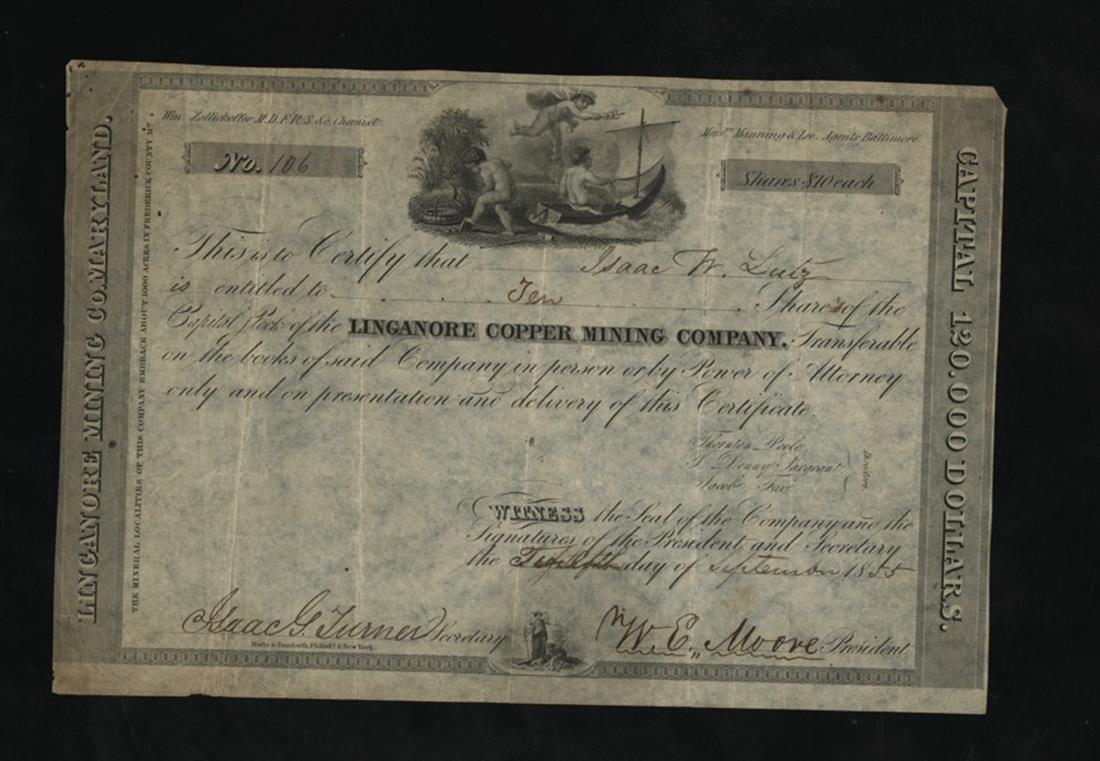 LINGANORE MINING CO. MARYLAND.
THE MINERAL LOCALITIES OF THIS COMPANY EMBRACE ABOUT 1000 ACRES IN FREDERICK COUNTY Md.
Wm. Zollickoffer M.D.F.R.S. &c. Chemist.
Messrs. Manning & Lee, Agents Baltimore
No. 106
Shares $10 each
This is to Certify that Isaac W. Lutz
is entitled to Ten Shares of the
Capital Stock of the LINGANORE COPPER MINING COMPANY. Transferable
on the books of said Company in person or by Power of Attorney
only and on presentation and delivery of this Certificate.
Thornton Poole
Denny Sargeant
Jacob
WITNESS the Seal of the Company and the
Signatures of the President and Secretary
the Twelfth day of September 1855
Isaac G. Turner Secretary
W. E. Moore President
Danforth, Philada. & New York.
CAPITAL 120.000 DOLLARS.